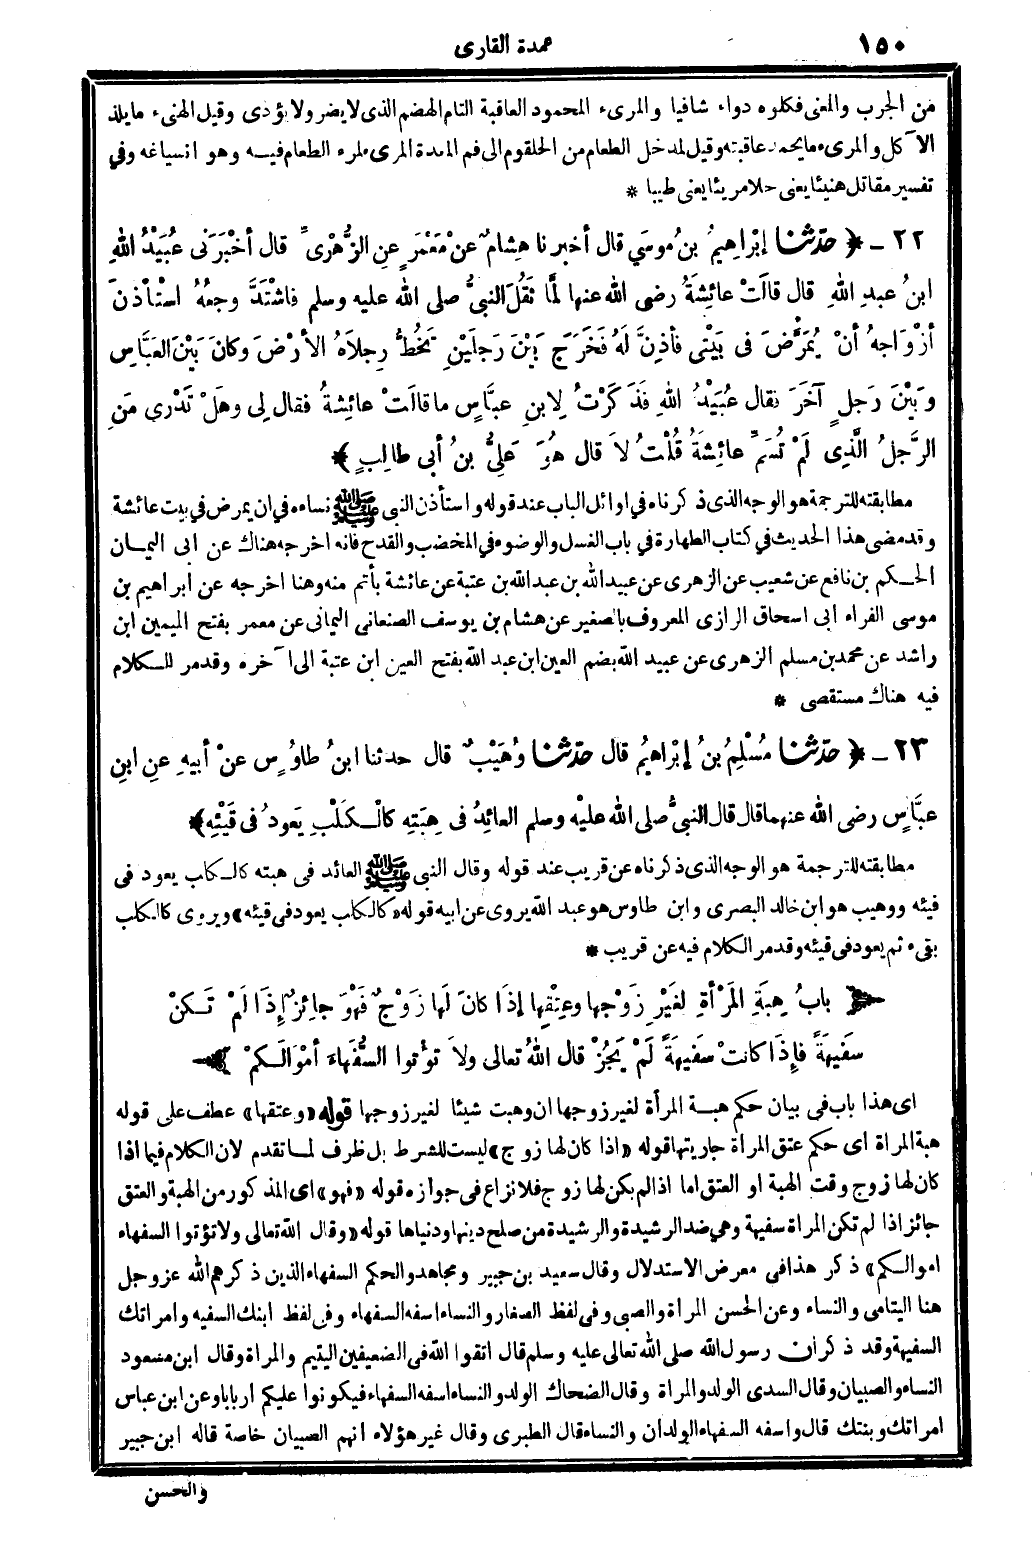 ١٥٠
عمدة القارى
من الجرب والمعنى فكلوه دواء شافيا والمرىء المحمود العاقبة التام الهضم الذى لايضر ولايؤذى وقيل الهنىء مايلذ
الآكل والمرىء مايحمد عاقبته وقيل لمدخل الطعام من الحلقوم الى فم المعدة المرىء لمرء الطعام فيه وهو انسياغه وفي
تفسير مقاتل هنيئا يعنى حلا مريئا يعنى طيبا *
٢٢ ـ ﴿ حدّثنا إبْرَاهِيمُ بنُ مُوسَي قال أخبرنا هِشامٌ عنْ مَعْمَرٍ عنِ الزُّهْرِىِّ قال أخْبَرَنى عُبَيْدُ اللهِ
ابنُ عبدِ اللهِ قال قالَتْ عائِشَةُ رضى الله عنها لَمَّا ثَقُلَ النبيُّ صلى الله عليه وسلم فاشْتَدَّ وجعُهُ اسْتَأْذنَ
أزْوَاجهُ أنْ يُمَرَّضَ فى بَيْتِى فأذِنَّ لَهُ فَخَرَجَ بَيْنَ رَجلَيْنِ تَخُطُّ رِجلاَهُ الأرْضَ وكانَ بَيْنَ العَبَّاسِ
وَبَيْنَ رَجلٍ آخَرَ فقال عُبَيْدُ اللهِ فَذَكَرْتُ لِابنِ عبَّاسٍ ما قالَتْ عائِشةُ فقال لِى وهَلْ تَدْرِى مَنِ
الرَّجلُ الَّذِى لَمْ تُسَمِّ عائِشَةُ قُلْتُ لاَ قال هُوَ عَلِيُّ بنُ أبى طالِبٍ ﴾ *
مطابقته للترجمة هو الوجه الذى ذكرناه في اوائل الباب عند قوله واستأذن النبى ﷺ نساءه في ان يمرض في بيت عائشة
وقد مضى هذا الحديث في كتاب الطهارة في باب الغسل والوضوء في المخضب والقدح فانه اخرجه هناك عن ابى اليمان
الحكم بن نافع عن شعيب عن الزهرى عن عبيد الله بن عبد الله بن عتبة عن عائشة بأتم منه وهنا اخرجه عن ابراهيم بن
موسى الفراء ابى اسحاق الرازى المعروف بالصغير عن هشام بن يوسف الصنعانى اليمانى عن معمر بفتح الميمين ابن
راشد عن محمد بن مسلم الزهرى عن عبيد الله بضم العين ابن عبد الله بفتح العين ابن عتبة الى آخره وقد مر للكلام
فيه هناك مستقصى *
٢٣ ـ ﴿ حدّثنا مُسْلِمُ بنُ إبْرَاهِيمُ قال حدّثنا وُهَيْبٌ قال حدثنا ابنُ طاوُسٍ عنْ أبيهِ عنِ ابنِ
عبَّاسٍ رضى الله عنهما قال قال النبيُّ صلى الله عليْه وسلم العائِدُ فى هِبَتِه كالْكَلْبِ يَعودُ فى قَيْئِهِ ﴾ *
مطابقته للترجمة هو الوجه الذى ذكرناه عن قريب عند قوله وقال النبى ﷺ العائد فى هبته كالكلب يعود فى
قيئه ووهيب هو ابن خالد البصرى وابن طاوس هو عبد الله يروى عن ابيه قوله «كالكلب يعود فى قيئه» ويروى كالكلب
يقىء ثم يعود فى قيئه وقد مر الكلام فيه عن قريب *
بابُ هِبَةِ المَرْأةِ لغَيْرِ زَوْجها وعِتْقِها إذَا كانَ لَها زَوْجٌ فَهْوَ جائِزٌ إذَا لَمْ تَكنْ
سَفيهَةً فإذَا كانتْ سَفيهَةً لَمْ يَجُزْ قال اللهُ تعالى ولاَ تؤْتوا السُّفَهاءَ أمْوَالَكمْ
اى هذا باب فى بيان حكم هبة المرأة لغير زوجها ان وهبت شيئا لغير زوجها قوله «وعتقها» عطف على قوله
هبة المرأة اى حكم عتق المرأة جاريتها قوله «اذا كان لها زوج» ليست للشرط بل ظرف لما تقدم لان الكلام فيما اذا
كان لها زوج وقت الهبة او العتق اما اذا لم يكن لها زوج فلانزاع فى جوازه قوله «فهو» اى المذكور من الهبة والعتق
جائز اذا لم تكن المرأة سفيهة وهي ضد الرشيدة والرشيدة من صلح دينها ودنياها قوله «وقال الله تعالى ولا تؤتوا السفهاء
اموالكم» ذكر هذا فى معرض الاستدلال وقال سعيد بن جبير ومجاهد والحكم السفهاء الذين ذكرهم الله عز وجل
هنا اليتامى والنساء وعن الحسن المرأة والصبى وفى لفظ الصغار والنساء اسفه السفهاء وفى لفظ ابنك السفيه وامرأتك
السفيهة وقد ذكر ان رسول الله صلى الله تعالى عليه وسلم قال اتقوا الله فى الضعيفين اليتيم والمرأة وقال ابن مسعود
النساء والصبيان وقال السدى الولد والمرأة وقال الضحاك الولد والنساء اسفه السفهاء فيكونوا عليكم أربابا وعن ابن عباس
امرأتك وبنتك قال واسفه السفهاء الولدان والنساء قال الطبرى وقال غير هؤلاء انهم الصبيان خاصة قاله ابن جبير
والحسن